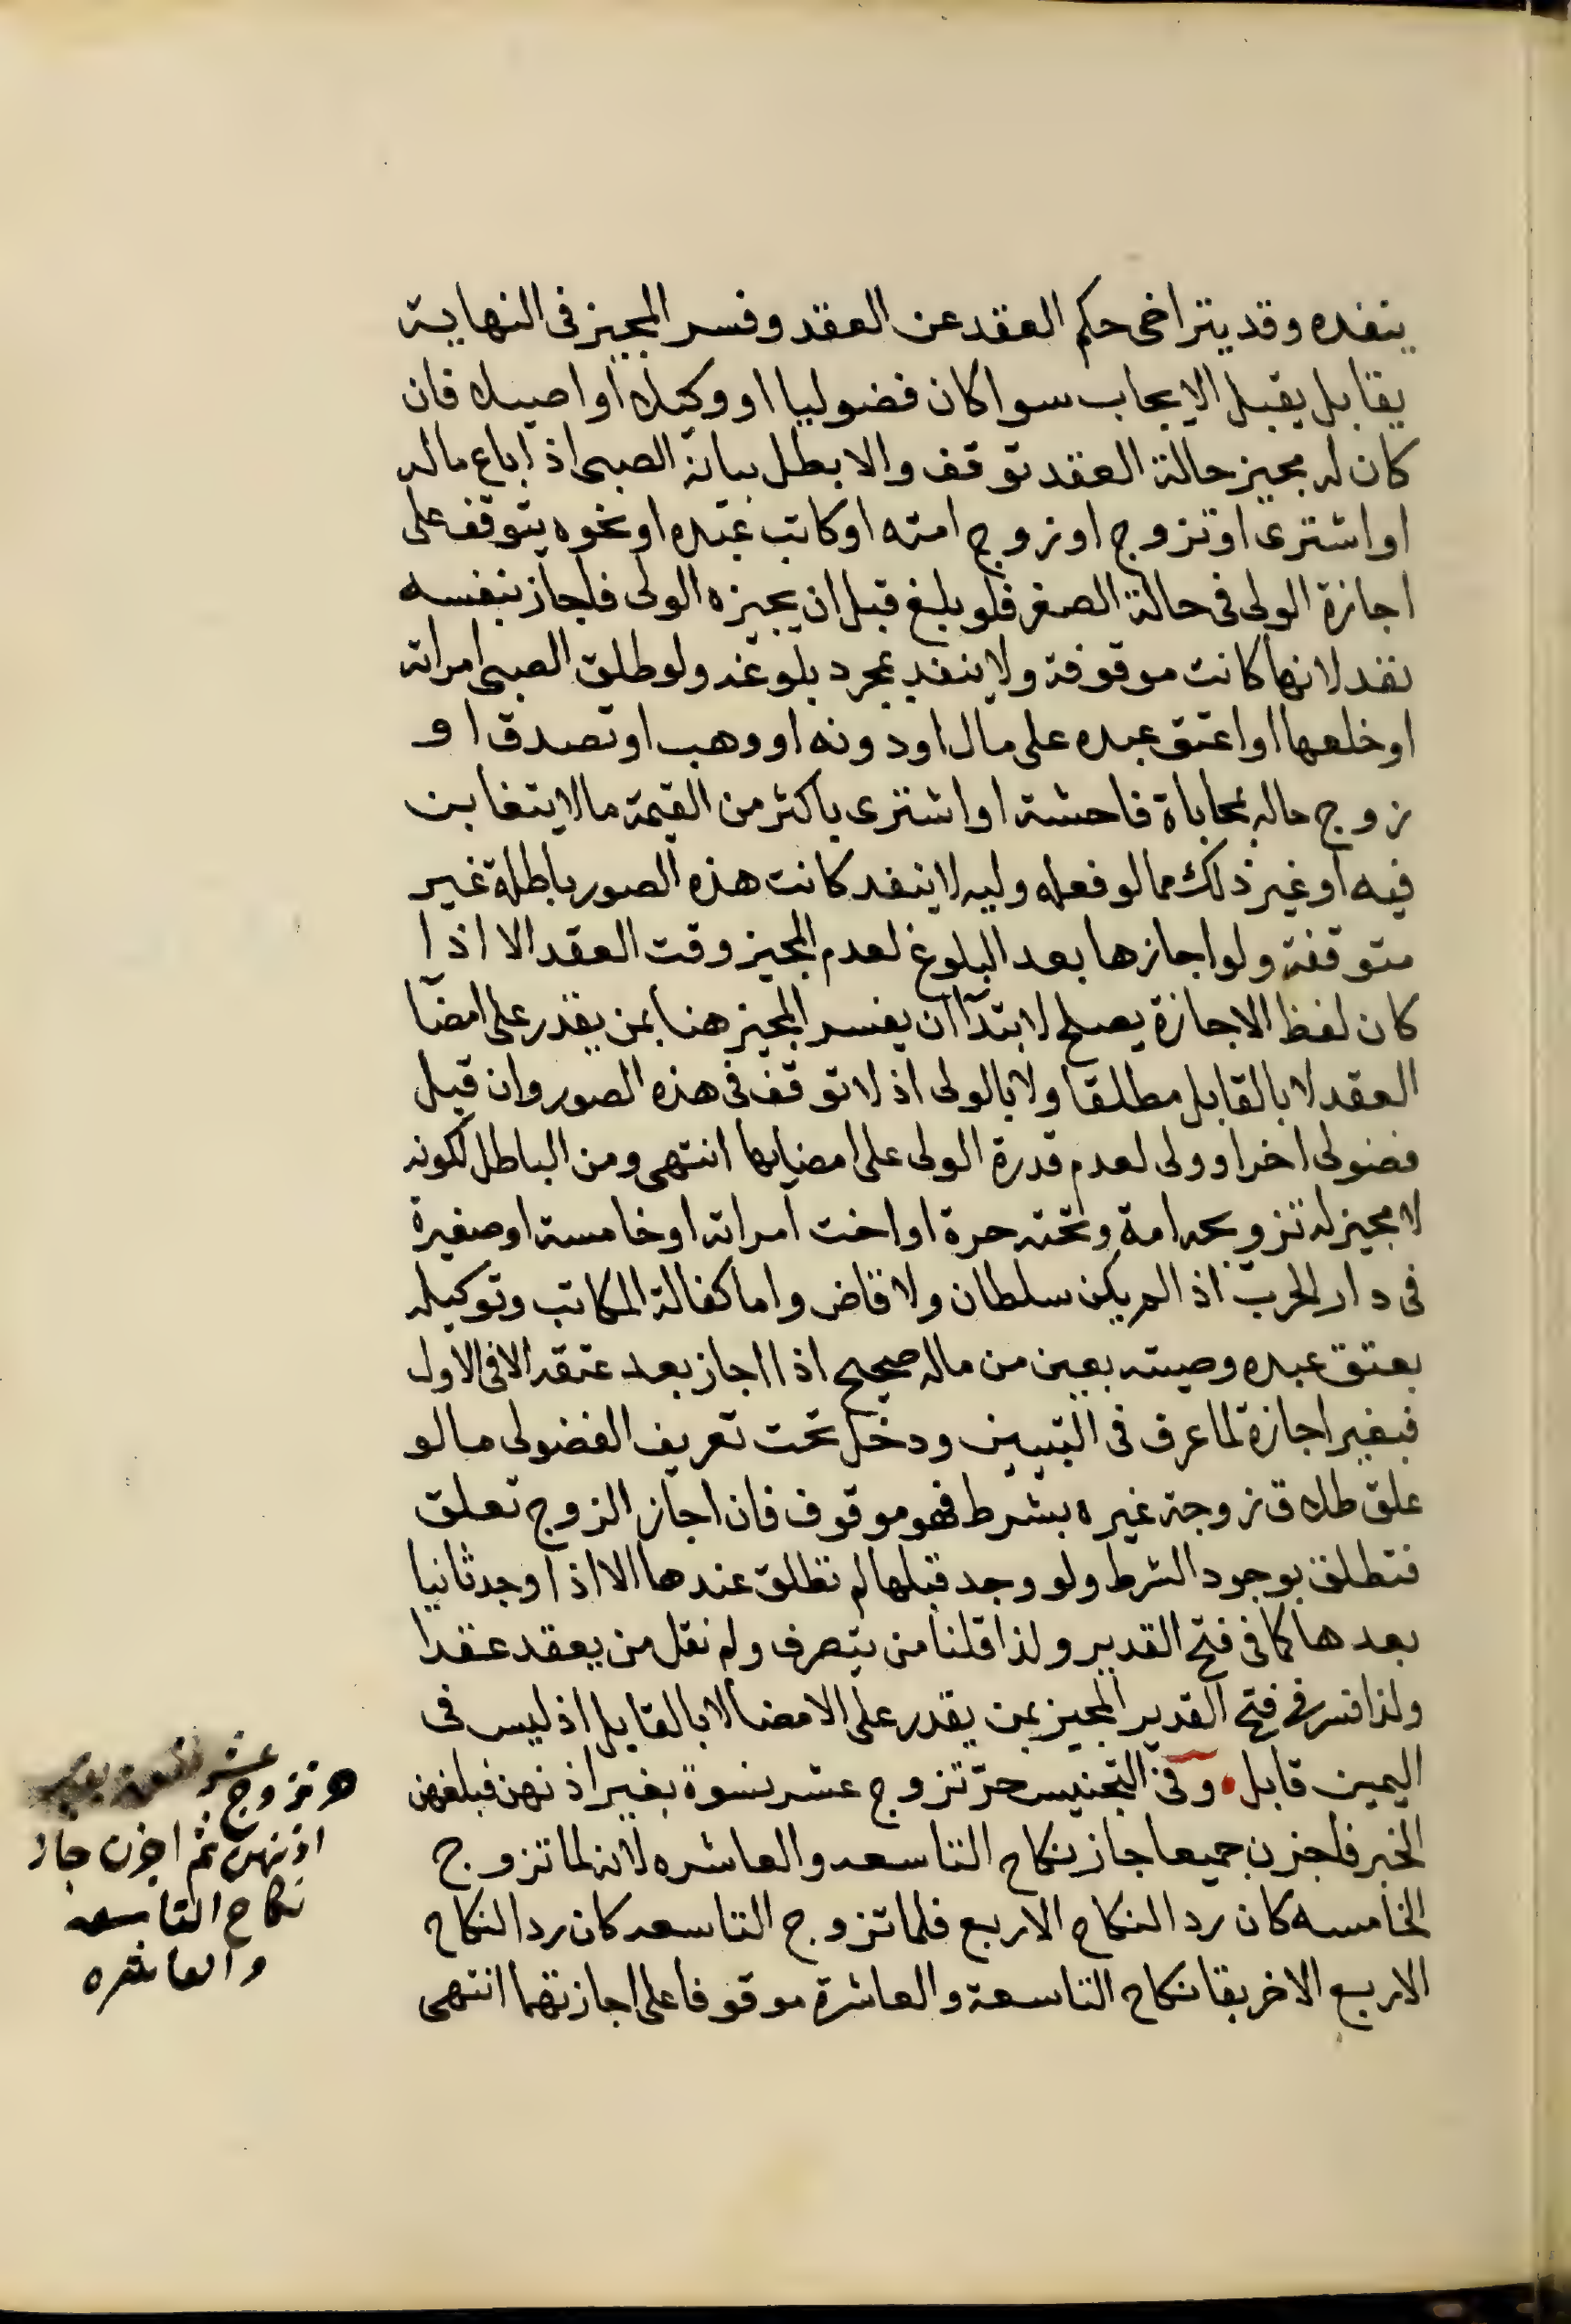 ينفده وقد يتراخى حكم العقد عن العقد وفسر المجيز فى النهاية
بقابل يقبل الايجاب سوا كان فضوليا او وكيلا او اصيلا فان
كان له مجيز حالة العقد توقف والا بطل بيانه الصبى اذا باع ماله
او اشترى او تزوج او زوج امته او كاتب عبده او نحوه يتوقف على
اجازة الولى فى حالة الصغر فلو بلغ قبل ان يجيزه الولى فاجاز بنفسه
نفد لانها كانت موقوفة ولا ينفد بمجرد بلوغه ولو طلق الصبى امراته
او خلعها او اعتق عبده على مال او دونه او وهب او تصدق او
زوج ماله بمحاباة فاحشة او اشترى باكثر من القيمة مالا يتغابن
فيه او غير ذلك مما لو فعله وليه لا ينفد كانت هذه الصور باطلة غير
متوقفة ولو اجازها بعد البلوغ لعدم المجيز وقت العقد الا اذا
كان لفظ الاجازة يصلح لابتدآ ان يفسر المجيز هنا بمن يقدر على امضآ
العقد لا بالقابل مطلقا ولا بالولى اذ لا توقف فى هذه الصور وان قبل
فضولى اخر او ولى لعدم قدرة الولى على امضايها انتهى ومن الباطل لكونه
لا مجيز له تزويجه امة وتحته حرة او اخت امراته او خامسة او صغيرة
فى دار الحرب اذ الم يكن سلطان ولا قاض واما كفالة المكاتب وتوكيله
بعتق عبده وصيته بعين من ماله صحيح اذا اجاز بعد عتقه الا فى الاول
فبغير اجازة لما عرف فى التبيين ودخل تحت تعريف الفضولى مالو
علق طلاق زوجة غيره بشرط فهو موقوف فان اجاز الزوج تعلق
فتطلق بوجود الشرط ولو وجد قبلها لم تطلق عندها الا اذا وجد ثانيا
بعدها كما فى فتح القدير ولذا قلنا من يتصرف ولم نقل من يعقد عقدا
ولذا فسر فى فتح القدير المجيز بمن يقدر على الامضا لا بالقابل اذ ليس فى
اليمين قابل وفى التجنيس حر تزوج عشر نسوة بغير اذنهن فبلغهن
الخبر فاجزن جميعا جاز نكاح التاسعه والعاشره لانه لما تزوج
الخامسه كان رد النكاح الاربع فلما تزوج التاسعه كان رد النكاح
الاربع الاخر بقا نكاح التاسعة والعاشرة موقوفا على اجازتهما انتهى
تزوج عشر بغير
اذنهن ثم اجزن جاز
نكاح التاسعه
والعاشره